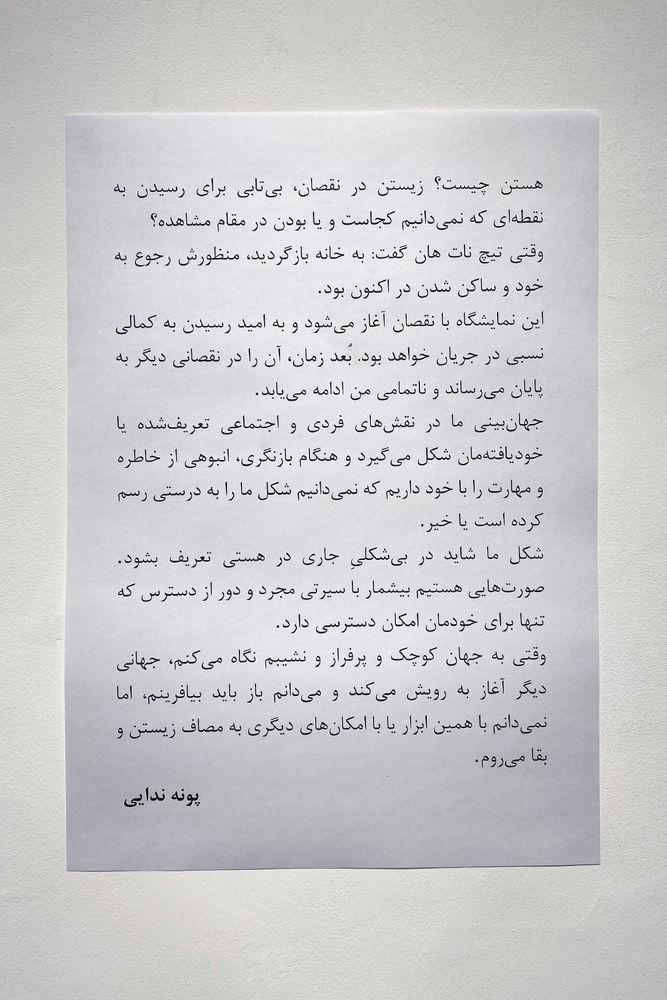 هستن چیست؟ زیستن در نقصان، بی‌تابی برای رسیدن به
نقطه‌ای که نمی‌دانیم کجاست و یا بودن در مقام مشاهده؟
وقتی تیچ نات هان گفت: به خانه بازگردید، منظورش رجوع به
خود و ساکن شدن در اکنون بود.
این نمایشگاه با نقصان آغاز می‌شود و به امید رسیدن به کمالی
نسبی در جریان خواهد بود. بُعد زمان، آن را در نقصانی دیگر به
پایان می‌رساند و ناتمامی من ادامه می‌یابد.
جهان‌بینی ما در نقش‌های فردی و اجتماعی تعریف‌شده یا
خودیافته‌مان شکل می‌گیرد و هنگام بازنگری، انبوهی از خاطره
و مهارت را با خود داریم که نمی‌دانیم شکل ما را به درستی رسم
کرده است یا خیر.
شکل ما شاید در بی‌شکلیِ جاری در هستی تعریف بشود.
صورت‌هایی هستیم بیشمار با سیرتی مجرد و دور از دسترس که
تنها برای خودمان امکان دسترسی دارد.
وقتی به جهان کوچک و پرفراز و نشیبم نگاه می‌کنم، جهانی
دیگر آغاز به رویش می‌کند و می‌دانم باز باید بیافرینم، اما
نمی‌دانم با همین ابزار یا با امکان‌های دیگری به مصاف زیستن و
بقا می‌روم.
پونه ندایی